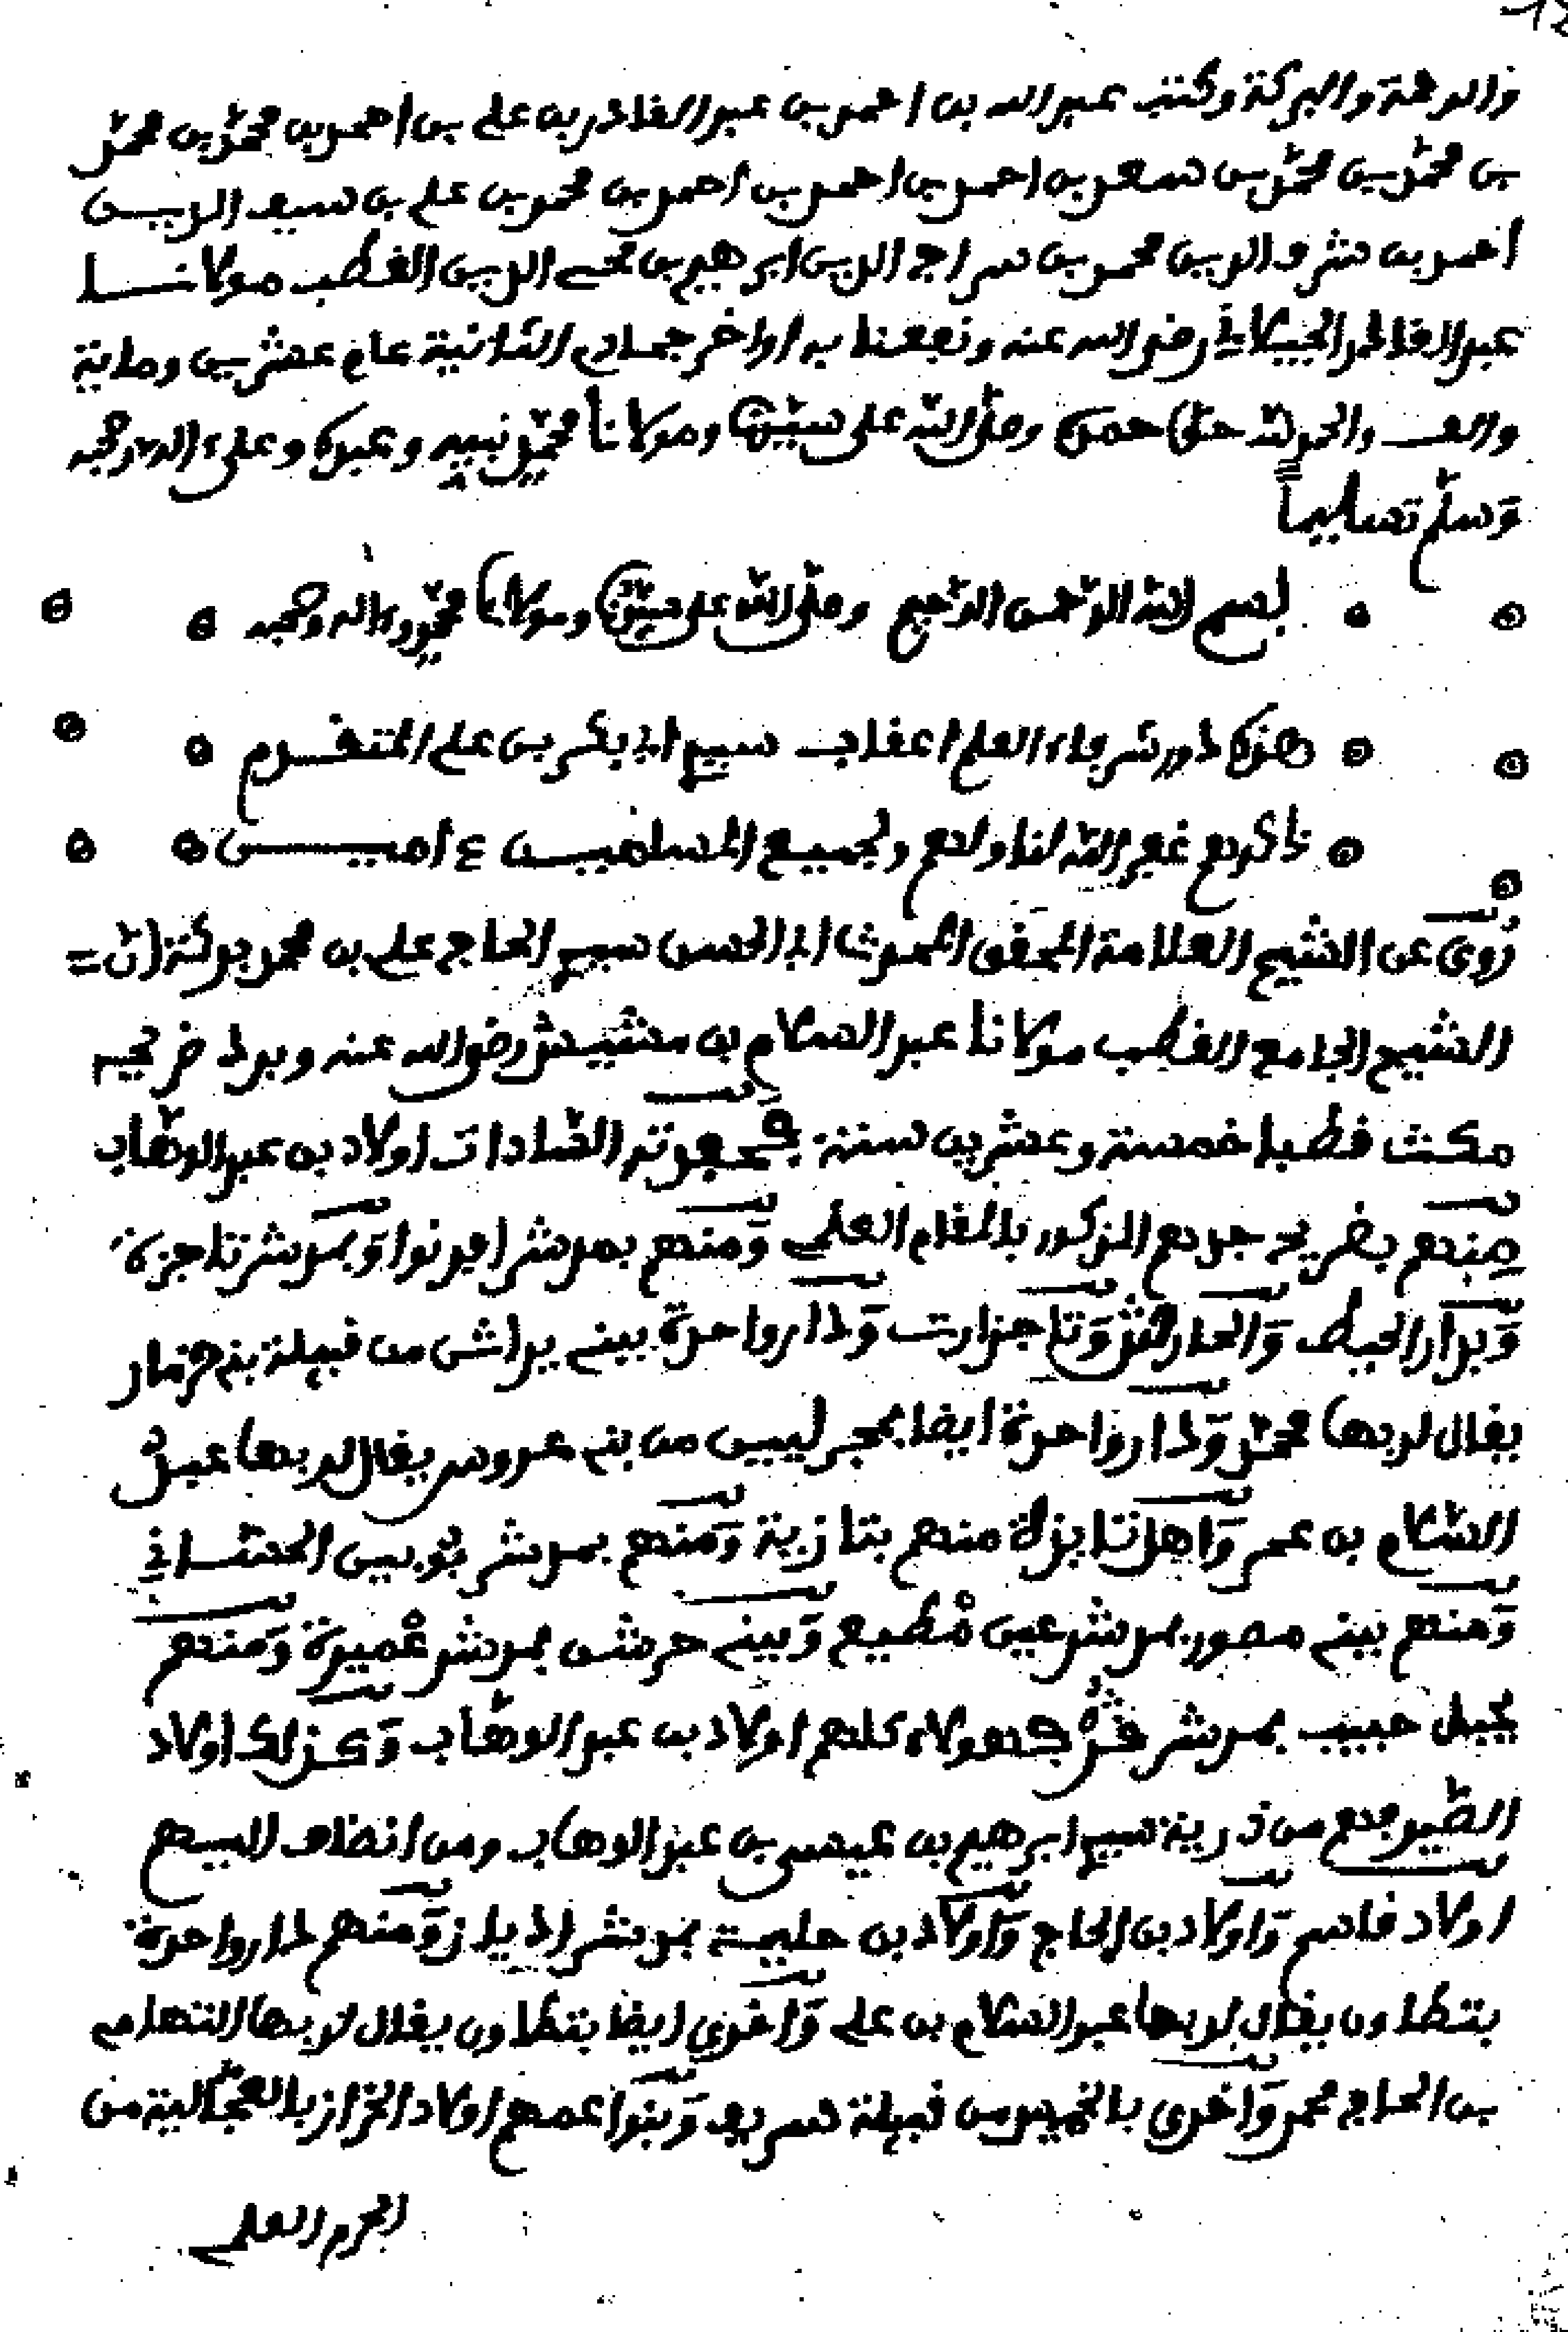 والرحمة والبركة وكتب عبد الله بن احمد بن عبد القادر بن علي بن احمد بن محمد بن محمد
بن محمد بن محمد بن سعد بن احمد بن احمد بن احمد بن محمد بن علي بن سيف الدين
احمد بن شرف الدين محمد بن سراج الدين ابرهيم بن محي الدين القطب مولانا
عبد القادر الجيلاني رضي الله عنه ونفعنا به اواخر جمادى الثانية عام عشرين وماية
والف والحمد لله حق حمده وصلى الله على سيدنا ومولانا محمد نبيه وعبده وعلى ءاله وصحبه
وسلم تسليما
بسم الله الرحمن الرحيم وصلى الله على سيدنا ومولانا محمد وءاله وصحبه
هذه دار شرفاء العلم اعقاب سيدي ابي بكر بن علي المتقدم
ذكرهم غفر الله لنا ولهم ولجميع المسلمين ءامين
روى عن الشيخ العلامة المحقق ابي الحسن سيدي الحاج علي بن محمد بركة ان
الشيخ الجامع القطب مولانا عبد السلام بن مشيش رضي الله عنه
مكث قطبا خمسة وعشرين سنة السادات اولاد بن عبد الوهاب
منهم بضريح جدهم المذكور بالمقام العلمي ومنهم بمدشر افرنوا وبمدشر تاجزة
وبدار الحيط والحارش وتاجزارت ودار واحدة ببني يراشن من قبيلة بني حزمار
يقال لربها محمد ودار واحدة ايضا بحجر ليبين من بني عروس يقال لربها عبد
السلام بن عمر واهل تابزة منهم بتازية ومنهم بمدشر بوبيين الحساني
ومنهم ببني مصور بمدشر عين مطيع وببني حرشن بمدشر عميرة ومنهم
بجبل حبيب بمدشر فهولاء كلهم اولاد بن عبد الوهاب وكذلك اولاد
الطير فهم من ذرية سيدي ابرهيم بن عيسى بن عبد الوهاب ومن انضاف اليهم
اولاد قاسم واولاد بن الحاج واولاد بن حليمة بمدشر اديار ومنهم دار واحدة
بتطاون يقال لربها عبد السلام بن علي واخرى ايضا بتطاون يقال لربها التهامي
بن الحاج محمد واخرى بالخميس من قبيلة سريف وبنوا عمهم اولاد الخراز بالعجالية من
الحرم العلمي